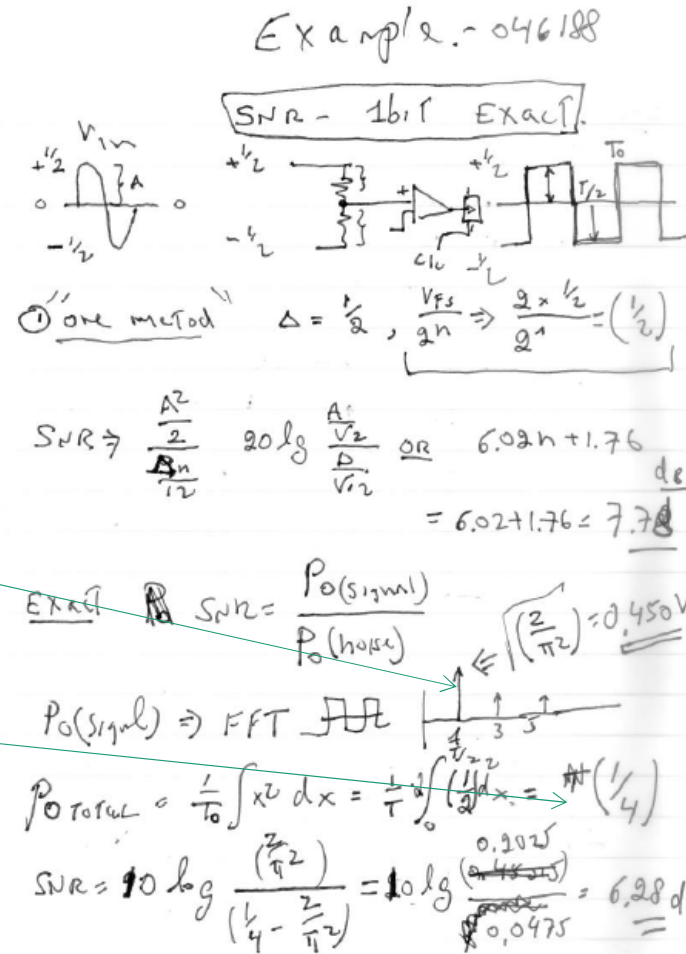 Example.- 046188
SNR - 1bit Exact.
Vin
+1/2 } A
0 0
-1/2
+1/2
-1/2
+
clk
+1/2 To
T/2
-1/2
① "one metod" Δ = 1/2 , VFS/2^n ⇒ 2 x 1/2 / 2^1 = (1/2)
SNR ⇒ A^2/2 20lg A/√2 / Δ/√12 OR 6.02n + 1.76
= 6.02 + 1.76 = 7.78 dB
Exact SNR = Po(signal) / Po(noise)
√(2/π2) = 0.450V
Po(signl) ⇒ FFT
1 3 5
Po TOTAL = 1/To ∫ x^2 dx = 1/T ∫ (1/2)^2 dx = (1/4)
SNR = 10 log (2/π2) / (1/4 - 2/π2) = 10 lg 0.2025 / 0.0475 = 6.28 d